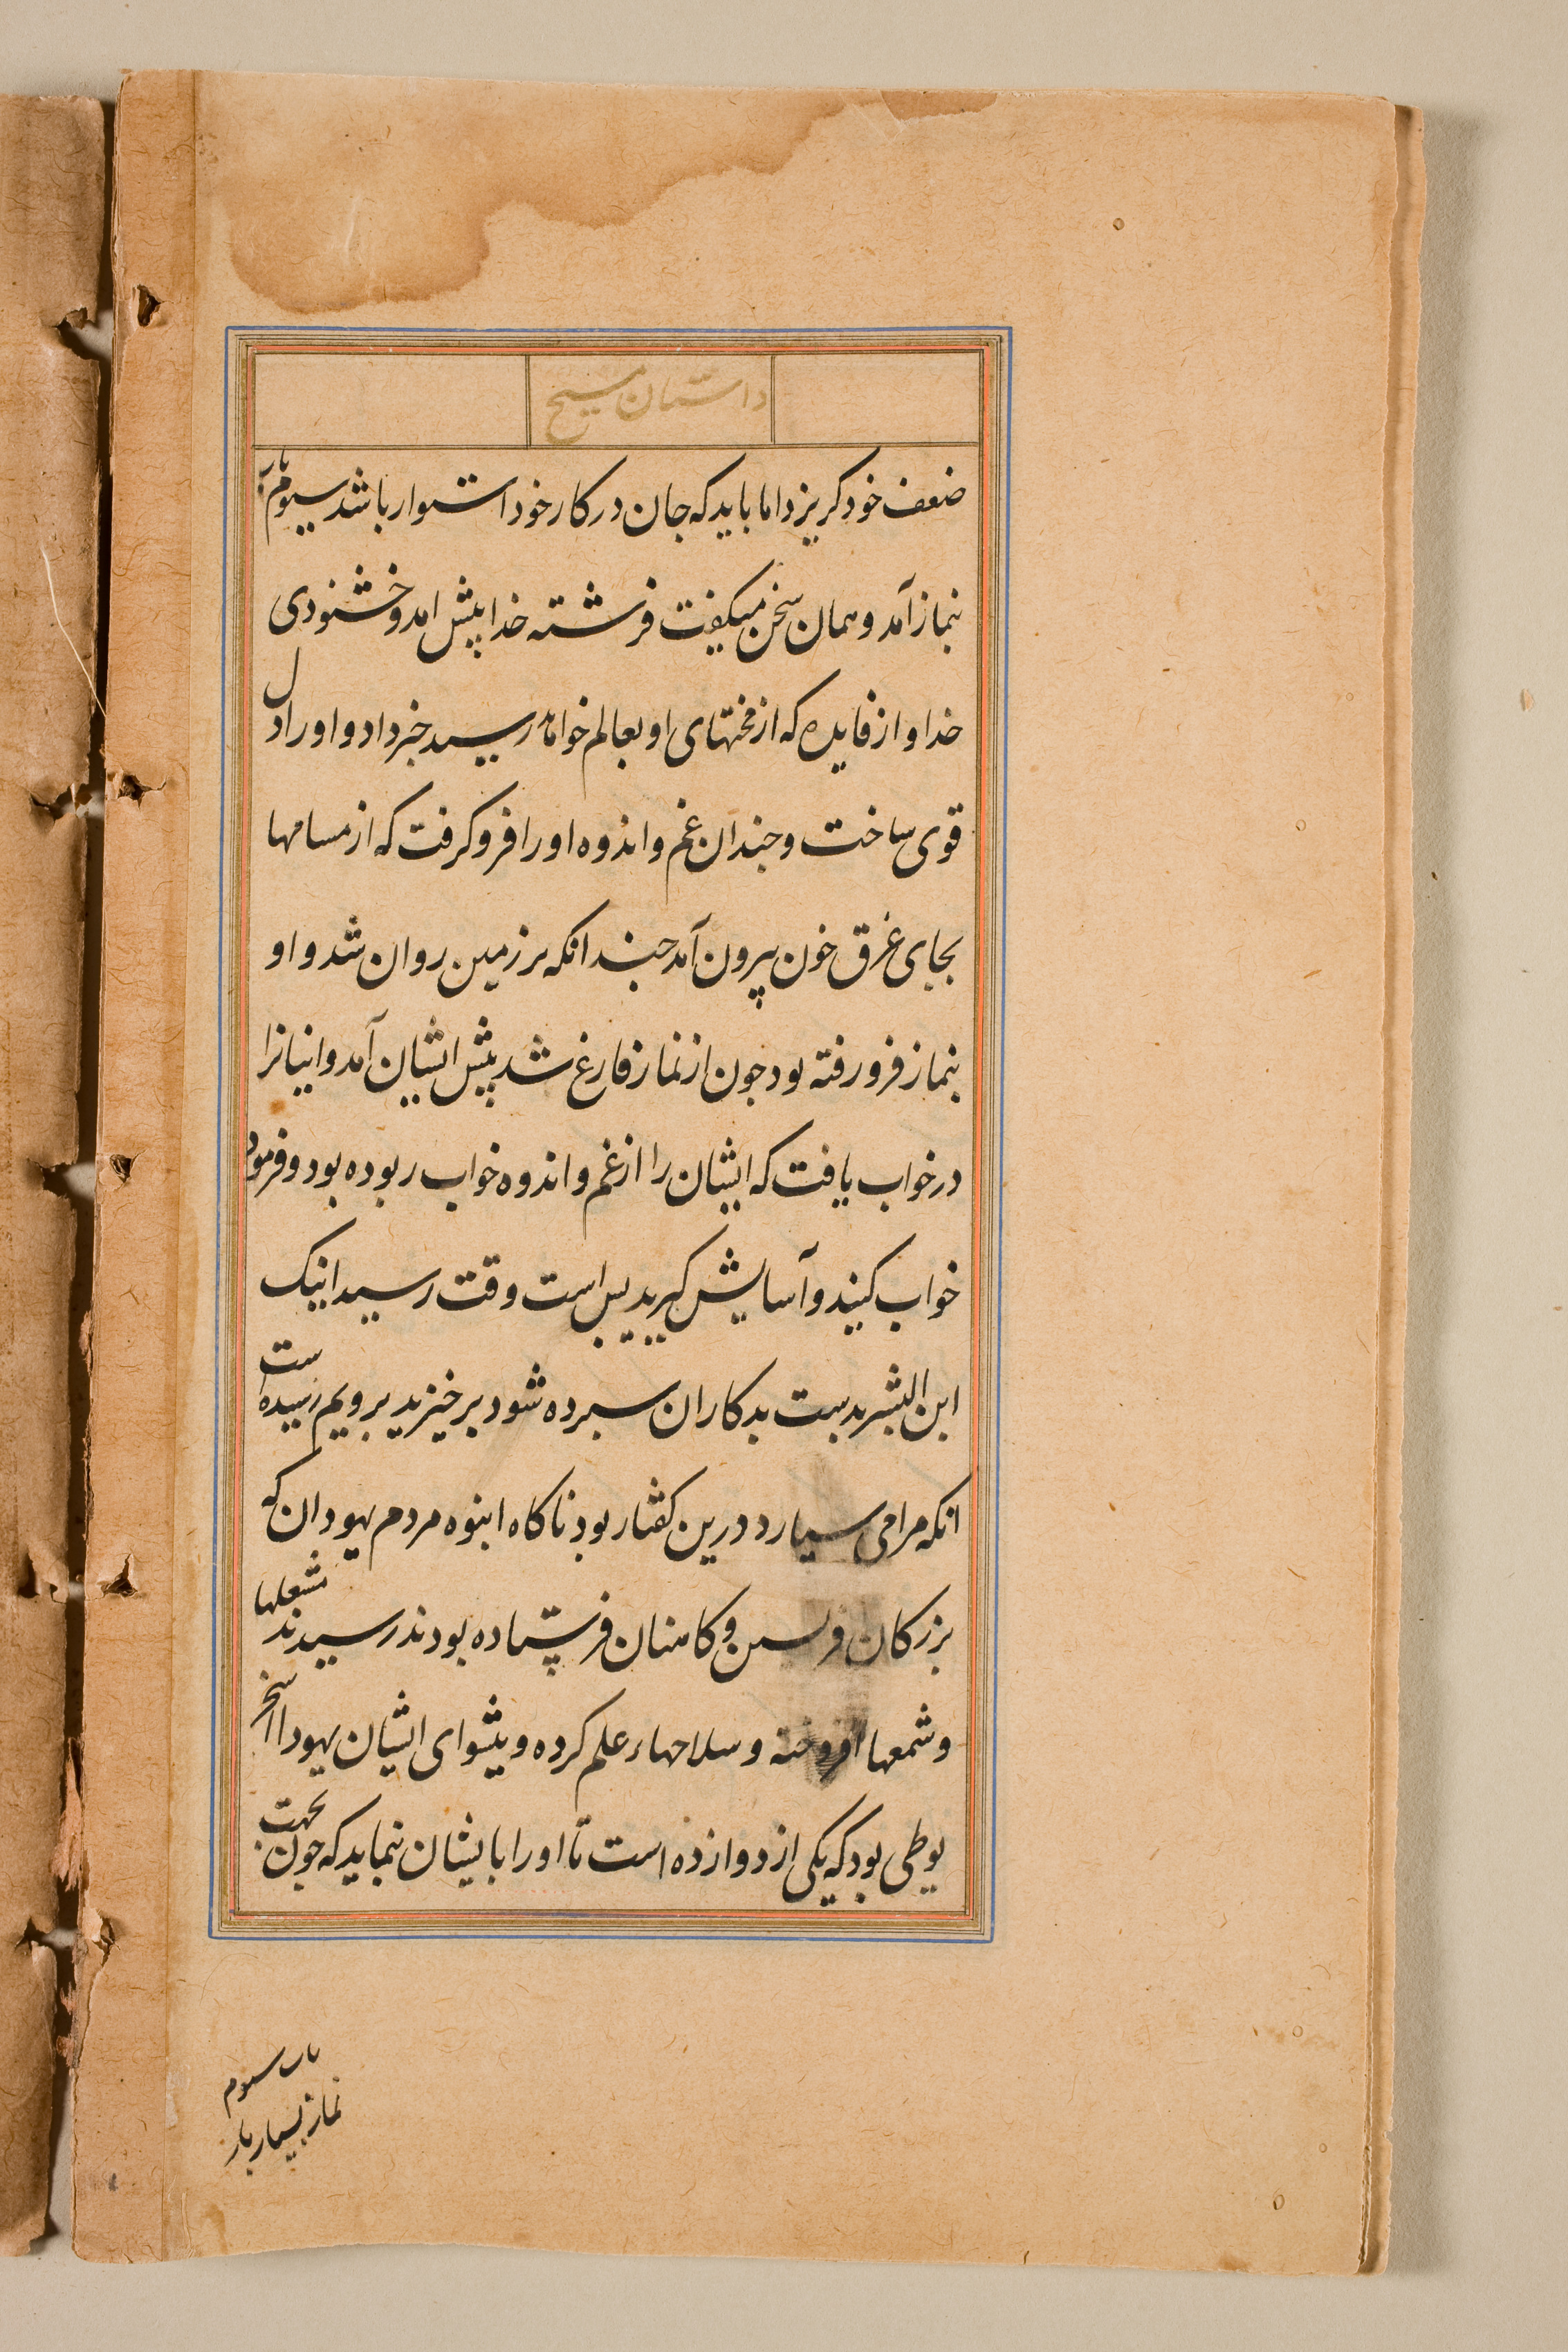 داستان مسیح
ضعف خود کریزد اما باید که جان در کار خود استوار باشد سیوم بار
بنماز آمد و همان سخن میکفت فرشته خدا پیش امد و خشنودی
خدا و از فایده که از محنتهای او بعالم خواهد رسید خبر داد و او را دل
قوی ساخت و جندان غم و اندوه او را فرو کرفت که از مسامها
بجای عرق خون پیرون آمد جندانکه بر زمین روان شد و او
بنماز فرو رفته بود جون از نماز فارغ شد پیش ایشان آمد و اینانرا
در خواب یافت که ایشان را از غم و اندوه خواب ربوده بود و فرمود
خواب کنید و آسایش کیرید بس است وقت رسید اینک
ابن البشر بدست بدکاران سبرده شود برخیزید برویم رسیده است
انکه مرا می سپارد درین کفتار بود ناکاه انبوه مردم یهودان که
بزرکان فریسن و کاهنان فرستاده بودند رسیدند مشعلها
و شمعها افروخته و سلاحهاء علم کرده و پیشوای ایشان یهودا اسخر
یوطی بود که یکی از دوازده است تا او را بایشان بنماید که جون بجهت
بار سوم
نماز بسیار بار